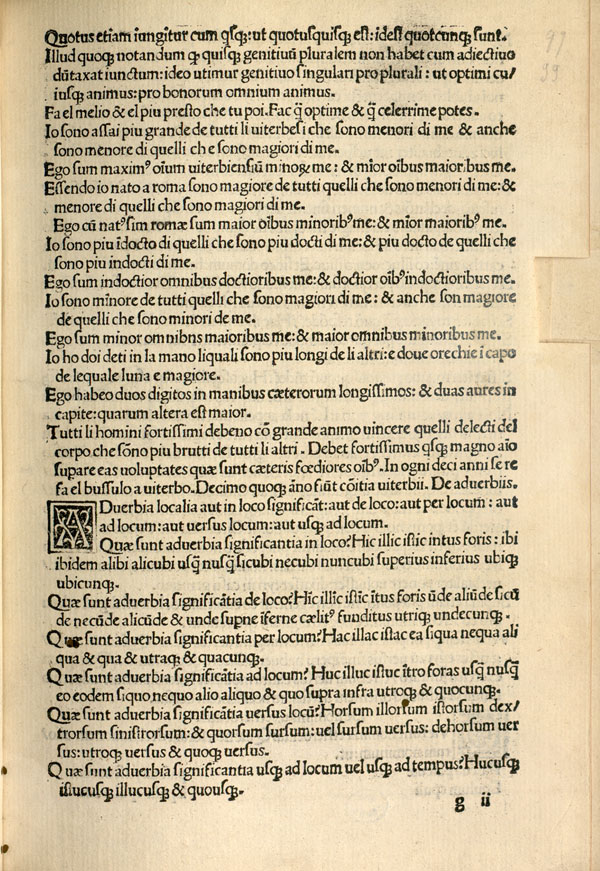 Quotus etiam iungitur cum qſq̃:ut quotusquiſq; eſt: ideſt quotcunq; ſunt.
Illud quoq; notandum ꝙ quiſq; genitiuũ pluralem non habet cum adiectiuo
dũtaxat iunctum: ideo utimur genitiuo ſingulari pro plurali : ut optimi cu/
iuſq; animus: pro bonorum omnium animus.
Fa el melio & el piu preſto che tu poi. Fac q̃ optime & q̃ celerrime potes.
Io ſono aſſai piu grande de tutti li uiterbeſi che ſono menori di me & anche
ſono menore di quelli che ſono magiori di me.
Ego ſum maximꝰ oĩum uiterbienſiũ minoꝝ me: & mĩor oĩbus maioribus me.
Eſſendo io nato a roma ſono magiore de tutti quelli che ſono menori di me: &
menore di quelli che ſono magiori di me.
Ego cũ natꝰ ſim romæ ſum maior oĩbus minoribꝰ me: & mĩor maioribꝰ me.
Io ſono piu ĩdocto di quelli che ſono piu docti di me: & piu docto de quelli che
ſono piu indocti di me.
Ego ſum indoctior omnibus doctioribus me: & doctior oĩbꝰ indoctioribus me.
Io ſono minore de tutti quelli che ſono magiori di me : & anche ſon magiore
de quelli che ſono minori de me.
Ego ſum minor omnibns maioribus me: & maior omnibus minoribus me.
Io ho doi deti in la mano liquali ſono piu longi de li altri: e doue orechie ĩ capo
de lequale luna e magiore.
Ego habeo duos digitos in manibus cæterorum longiſſimos: & duas aures in
capite: quarum altera eſt maior.
Tutti li homini fortiſſimi debeno cõ grande animo uincere quelli delecti del
corpo che ſono piu brutti de tutti li altri . Debet fortiſſimus qſq; magno aĩo
ſupare eas uoluptates quæ ſunt cæteris fœdiores oĩbꝰ. In ogni deci anni ſe re
fa el buſſulo a uiterbo. Decimo quoq; ãno fiũt cõitia uiterbii. De aduerbiis.
ADuerbia localia aut in loco ſignificãt: aut de loco: aut per locum : aut
ad locum: aut uerſus locum: aut uſq; ad locum.
Quæ ſunt aduerbia ſignificantia in loco? Hic illic iſtic intus foris : ibi
ibidem alibi alicubi uſq̃ nuſq̃ ſicubi necubi nuncubi ſuperius inferius ubiq;
ubicunq;.
Quæ ſunt aduerbia ſignificãtia de loco? Hĩc illĩc iſtĩc ĩtus foris ũde aliũde ſicũ
de necũde alicũde & unde ſupne ĩferne cælitꝰ funditus utriq; undecunq; .
Quæ ſunt aduerbia ſignificantia per locum? Hac illac iſtac ea ſiqua nequa ali
qua & qua & utraq; & quacunq;.
Quæ ſunt aduerbia ſignificãtia ad locum? Huc illuc iſtuc ĩtro foras uſq̃ nuſq̃
eo eodem ſiquo nequo alio aliquo & quo ſupra infra utroq; & quocunq;.
Quæ ſunt aduerbia ſignificãtia uerſus locũ? Horſum illorſum iſtorſum dex/
trorſum ſiniſtrorſum: & quorſum ſurſum: uel ſurſum uerſus: dehorſum uer
ſus: utroq; uerſus & quoq; uerſus.
Quæ ſunt aduerbia ſignificantia uſq; ad locum uel uſq; ad tempus? Hucuſq;
iſtucuſq; illucuſq; & quouſq;.
g ii